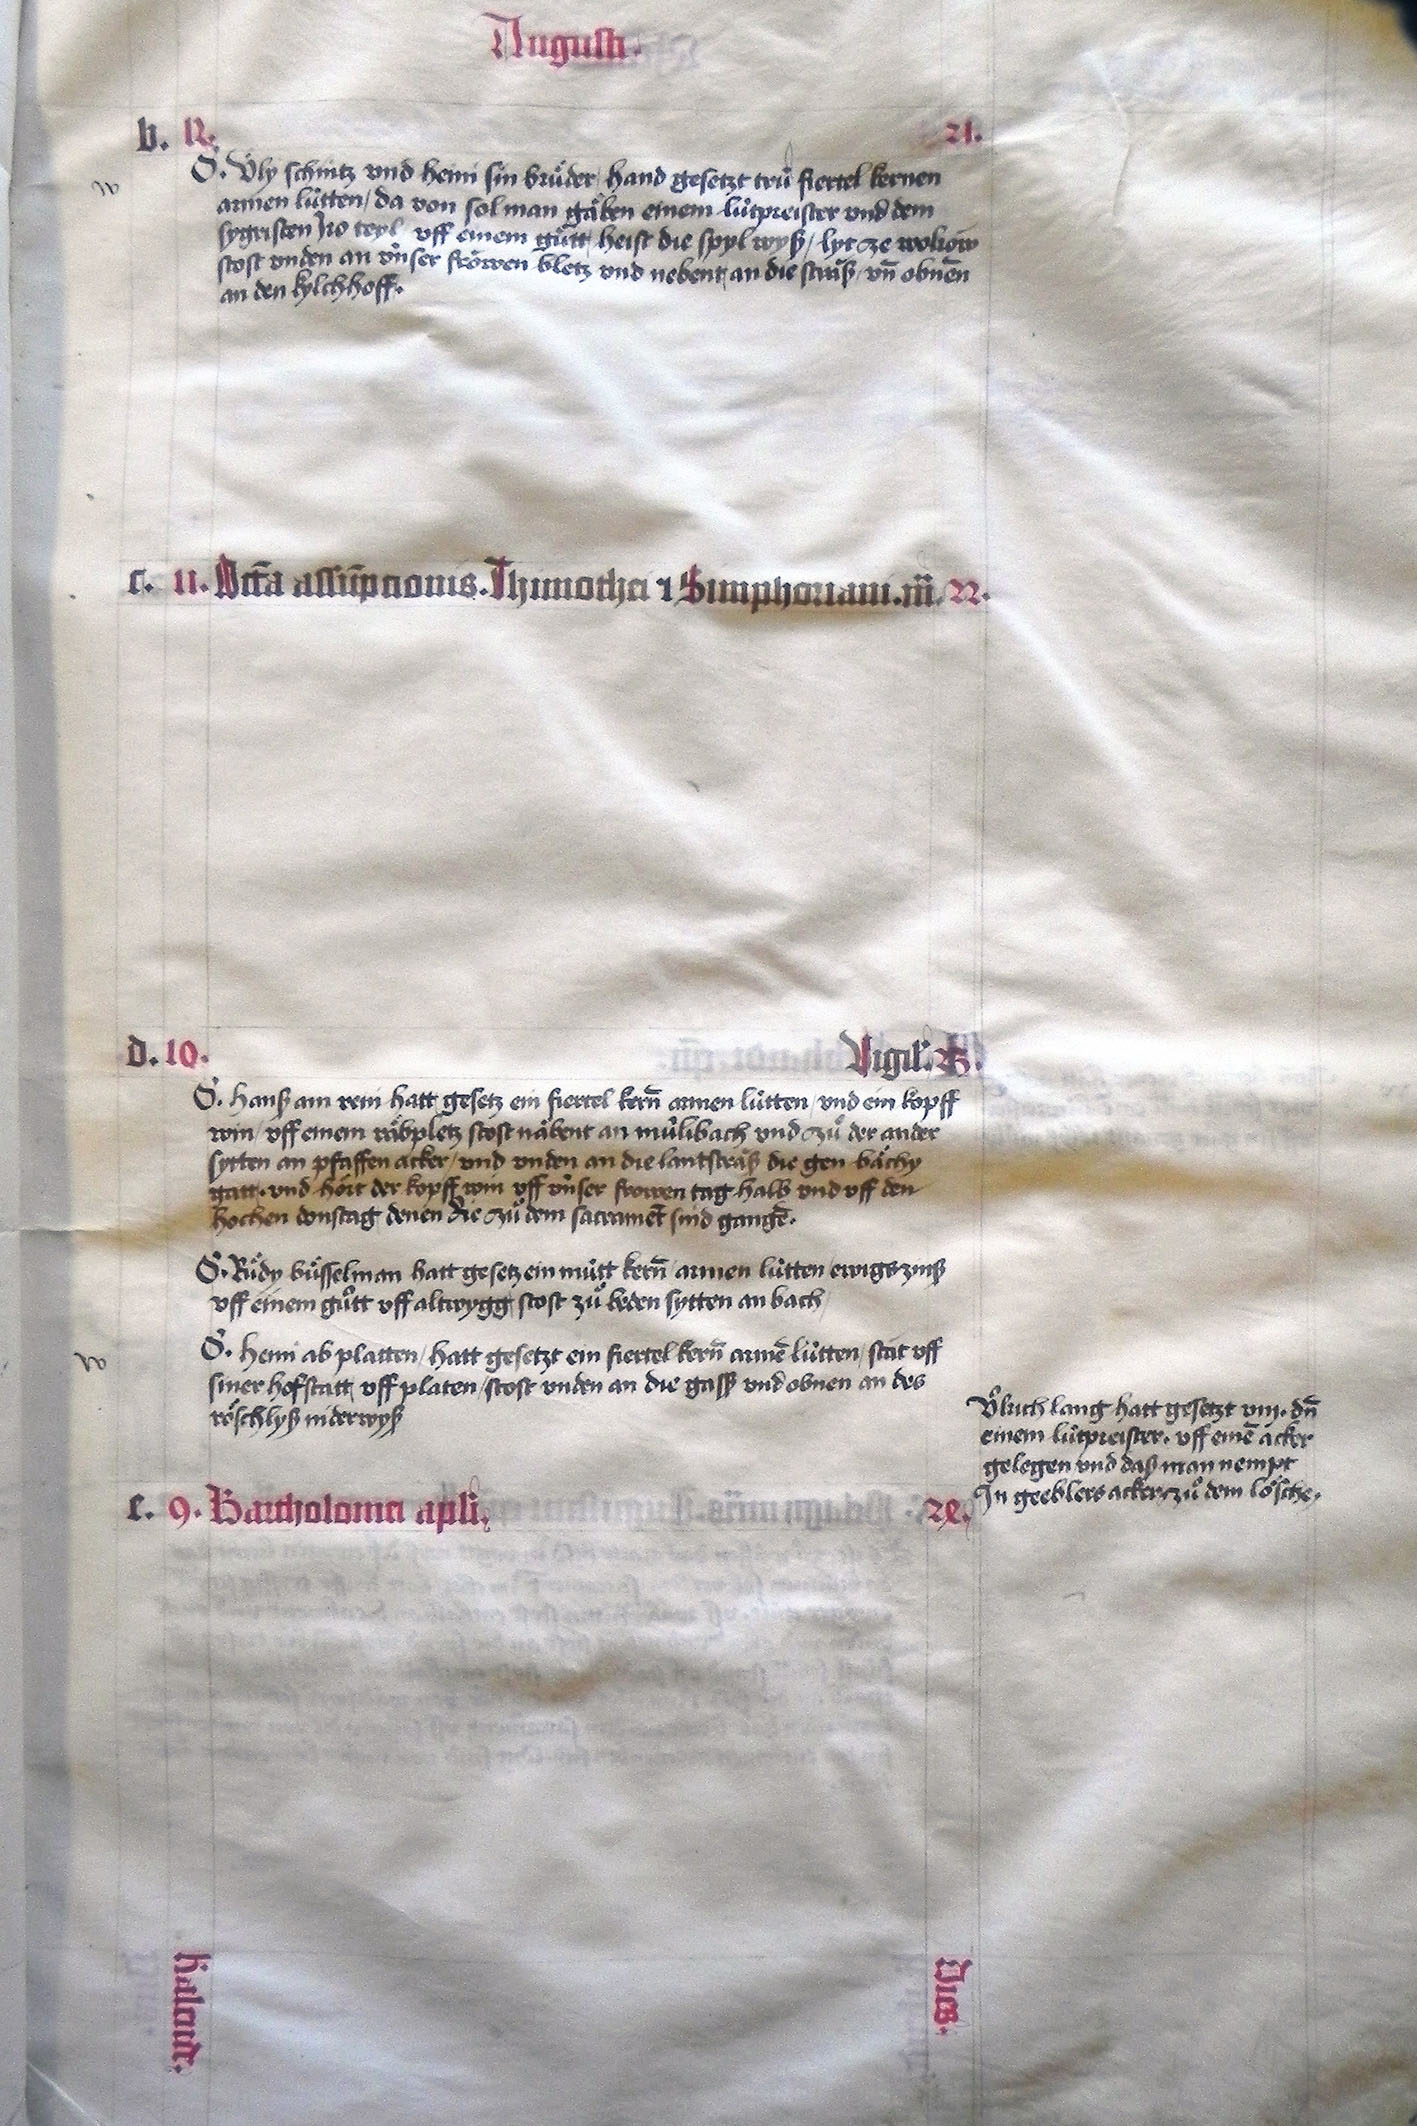 Augusti.
b. 12. 21.
w
O. Ůly schnitz vnd heini sin brůder / hand gesetzt trü fiertel kernen
armen lütten / da von sol man gäben einem lütpriester vnd dem
sygristen iro teyl / vff einem gůtt heist die spyl wyß / lyt ze wolrow
stost vnden an vnser fröwen bletz vnd nebent an die straß / vn̄ obnen
an den kylchhoff.
c. 11. Octa assūpcionis. Thimothei ⁊ Simphoriani. m̄. 22.
d. 10. Vigil. 23.
O. hanß am rein hatt gesetz ein fiertel kern̄ armen lütten / vnd ein kopff
win / vff einem räbpletz stost näbent an mülibach vnd zů der ander
sytten an pfaffen acker / vnd vnden an die lantsträß die gen bächy
gatt. vnd hört der kopff win vff vnser frowen tag halb vnd vff den
hochen donstag denen die zů dem sacramēt sind gangē.
O. Růdy büsselman hatt gesetz ein mütt kern̄ / armen lütten ewigs zinß
vff einem gůtt vff altwygg stost zů beden sytten an bach /
w
O. heini ab platten / hatt gesetzt ein fiertel kern̄ armē lütten / stät vff
siner hofstatt vff platen / stost vnden an die gass vnd obnen an des
röschlyß niderwyß
Ůlrich lang hatt gesetzt viij. dn̄
einem lütpriester. vff einē acker
gelegen vnd daß man nempt
In geeblers acker zů dem lösche.
e. 9. Bartholomei apl̄i. 24.
Kalend.
Dies.